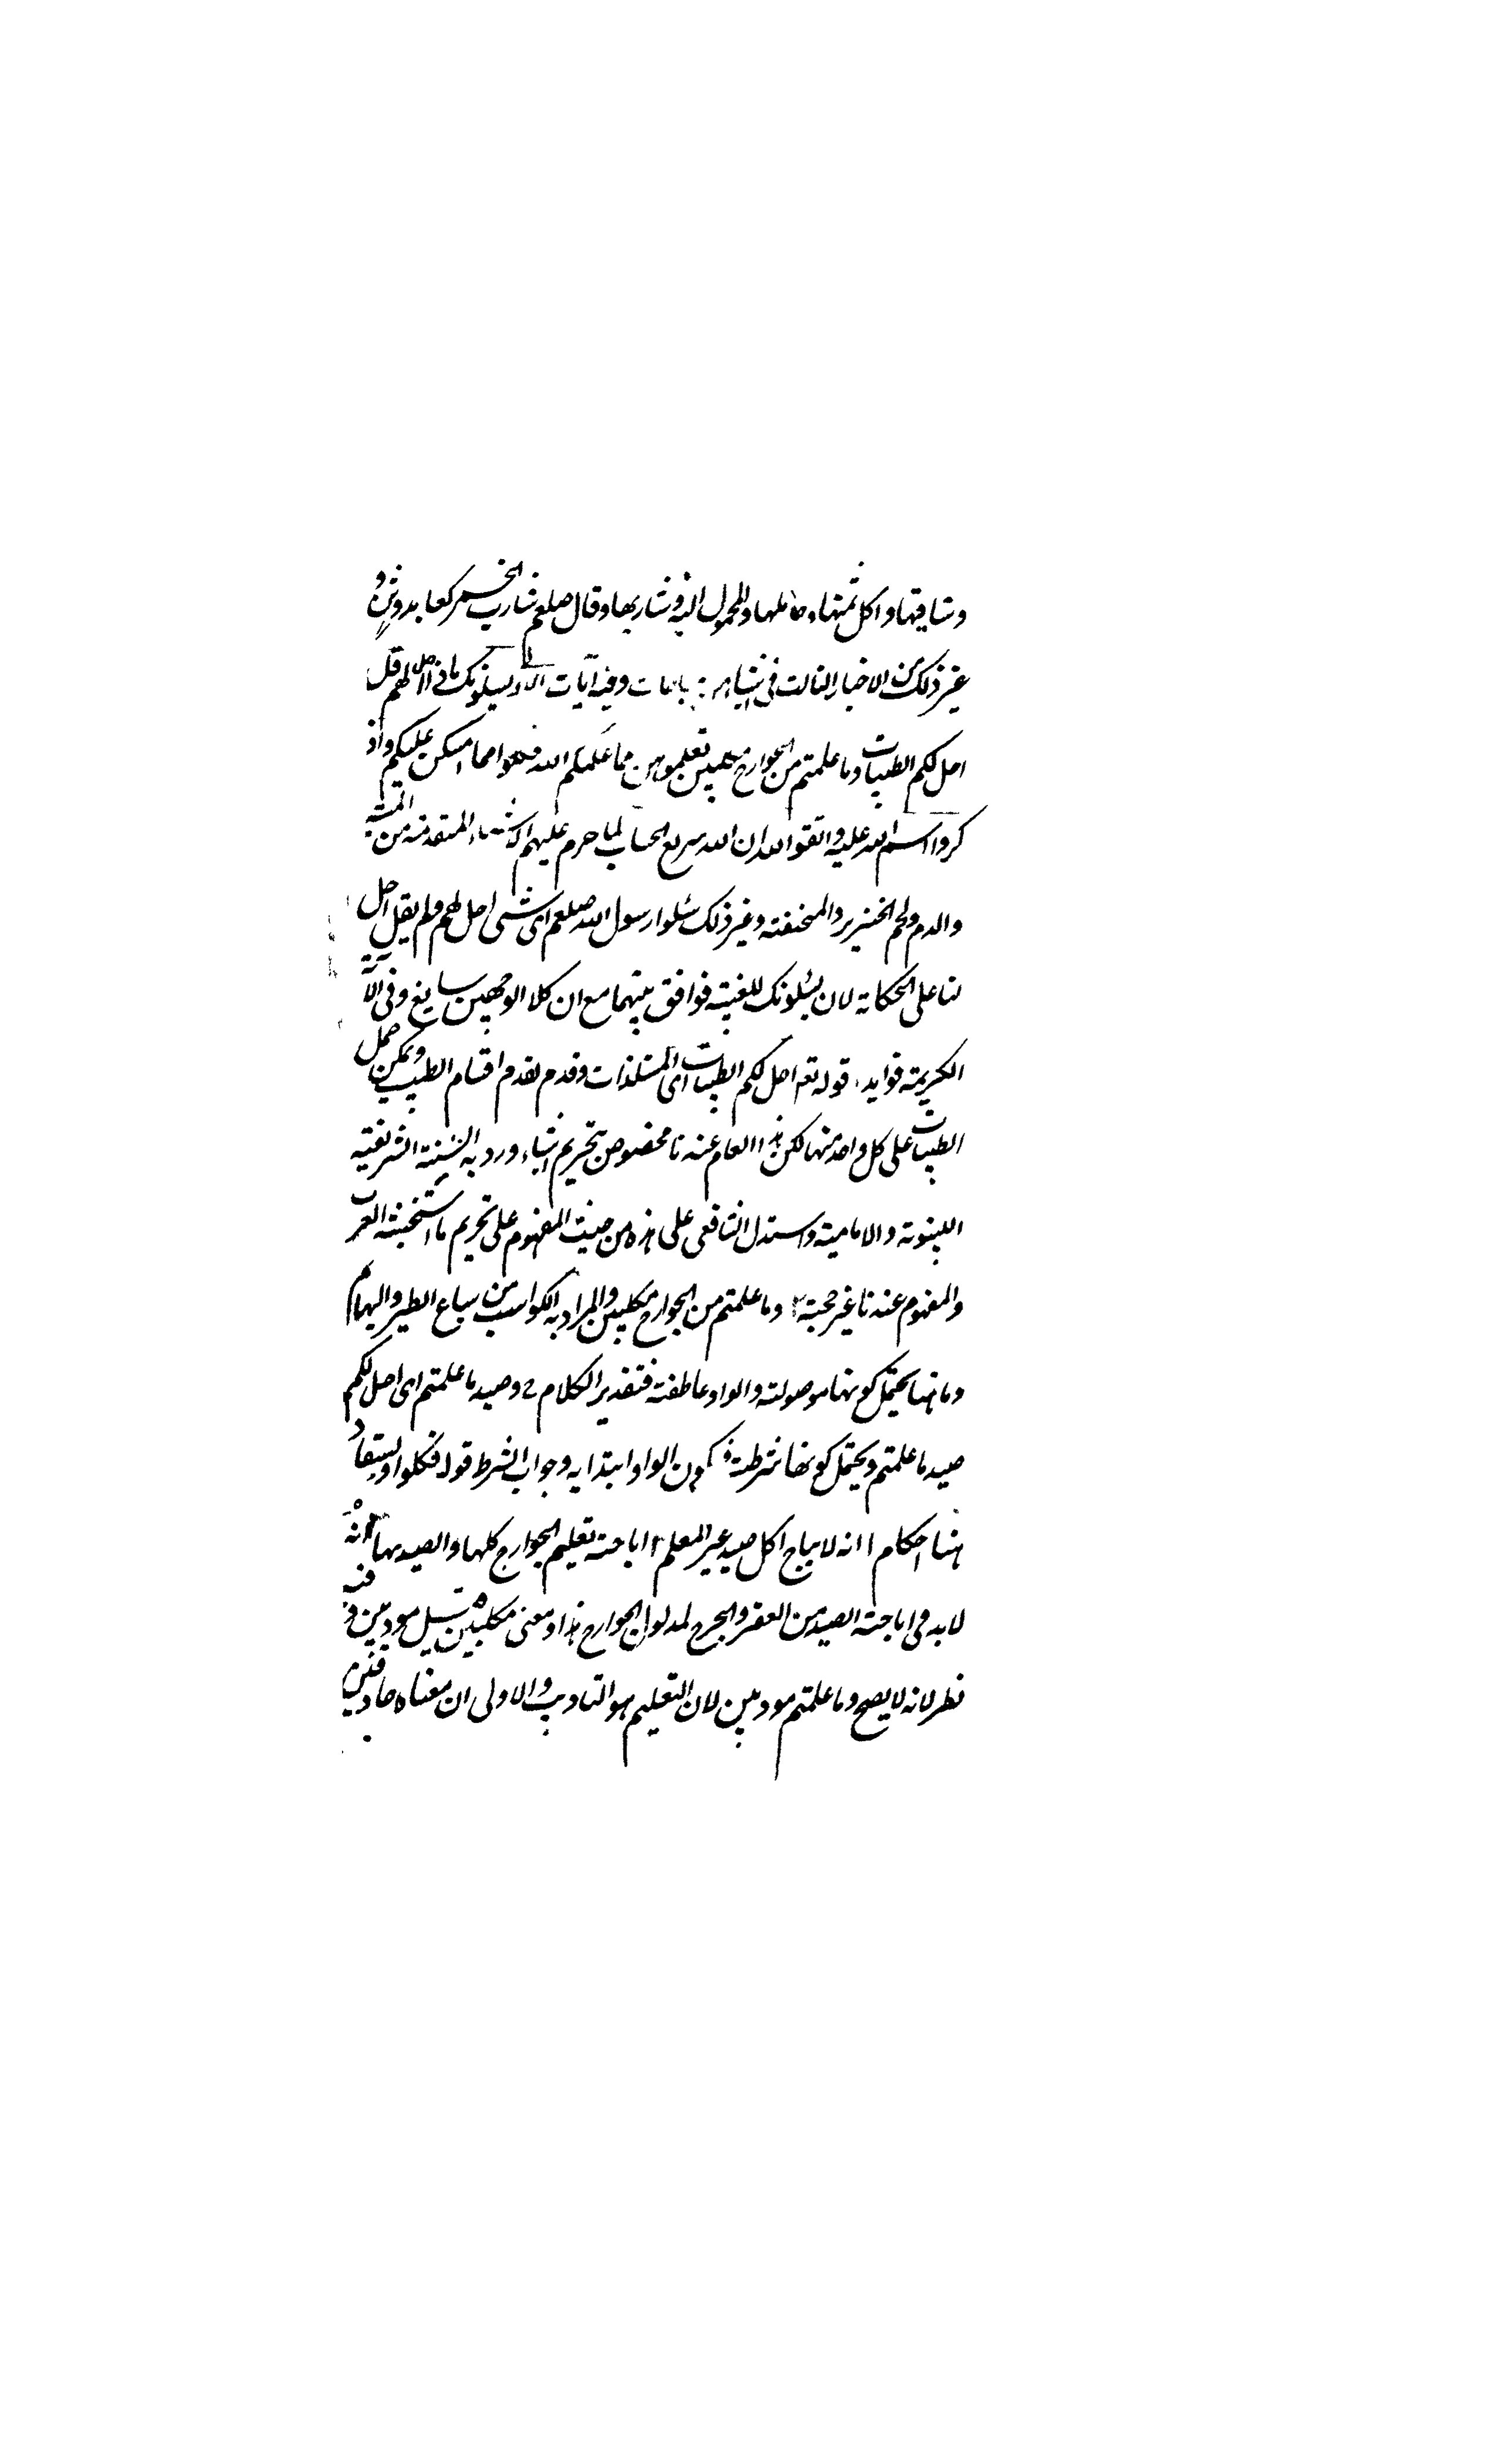 وساقيها واكل ثمنها وحاملها والمحمول اليه وشاربها وقال صلعم شارب الخمر كعابد وثن و
غير ذلك من الاخبار الثالث في اشياء من المباحات وفيه آيات الاولى يسلونك ماذا احل لهم قل
احل لكم الطيبات وما علمتم من الجوارح مكلبين تعلمونهن مما علمكم الله فكلوا مما امسكن عليكم واذ
كروا اسم الله عليه واتقوا الله ان الله سريع الحساب لما حرم عليهم الاشياء المتقدمة من الميتة
والدم ولحم الخنزير والمنخنقة وغير ذلك سئلوا رسول الله صلعم اى شى احل لهم ولم يقل احل
لنا على الحكاية لان يسئلونك للغيبة فوافق بينهما مع ان كلا الوجهين سايغ وفى الآية
الكريمة فوايد ا قوله تع احل لكم الطيبات اى المستلذات وقدم تقدم اقسام الطيب ويمكن حمل
الطيبات على كل واحد منها لكن هذا العام عندنا مخصوص بتحريم اشياء ورد به السنة الشريفة
النبوية والامامية واستدل الشافعى على هذه من حيث المفهوم على تحريم ما استخبثه العرب
والمفهوم عندنا غير حجة ٢ وما علمتم من الجوارح مكلبين والمراد به الكواسب من سباع الطير والبهايم
وما هنا يحتمل كونها موصولة والواو عاطفة فتقدير الكلام ح وصيد ما علمتم اى احل لكم
صيد ما علمتم ويحتمل كونها شرطية فيكون الواو ابتدايه وجواب الشرط قوله فكلوا ويستفاد
هنا احكام ا انه لا يباح اكل صيد غير المعلم ٢ اباحة تعليم الجوارح كلها والصيد بها ٣ انه
لابد فى اباحة الصيد من العقر والجرح لمدلول الجوارح هذا ومعنى مكلبين قيل مودبين وفيه
نظر لانه لا يصح وما علمتم مودبين لان التعليم هو التاديب والاولى ان معناه حاذقين